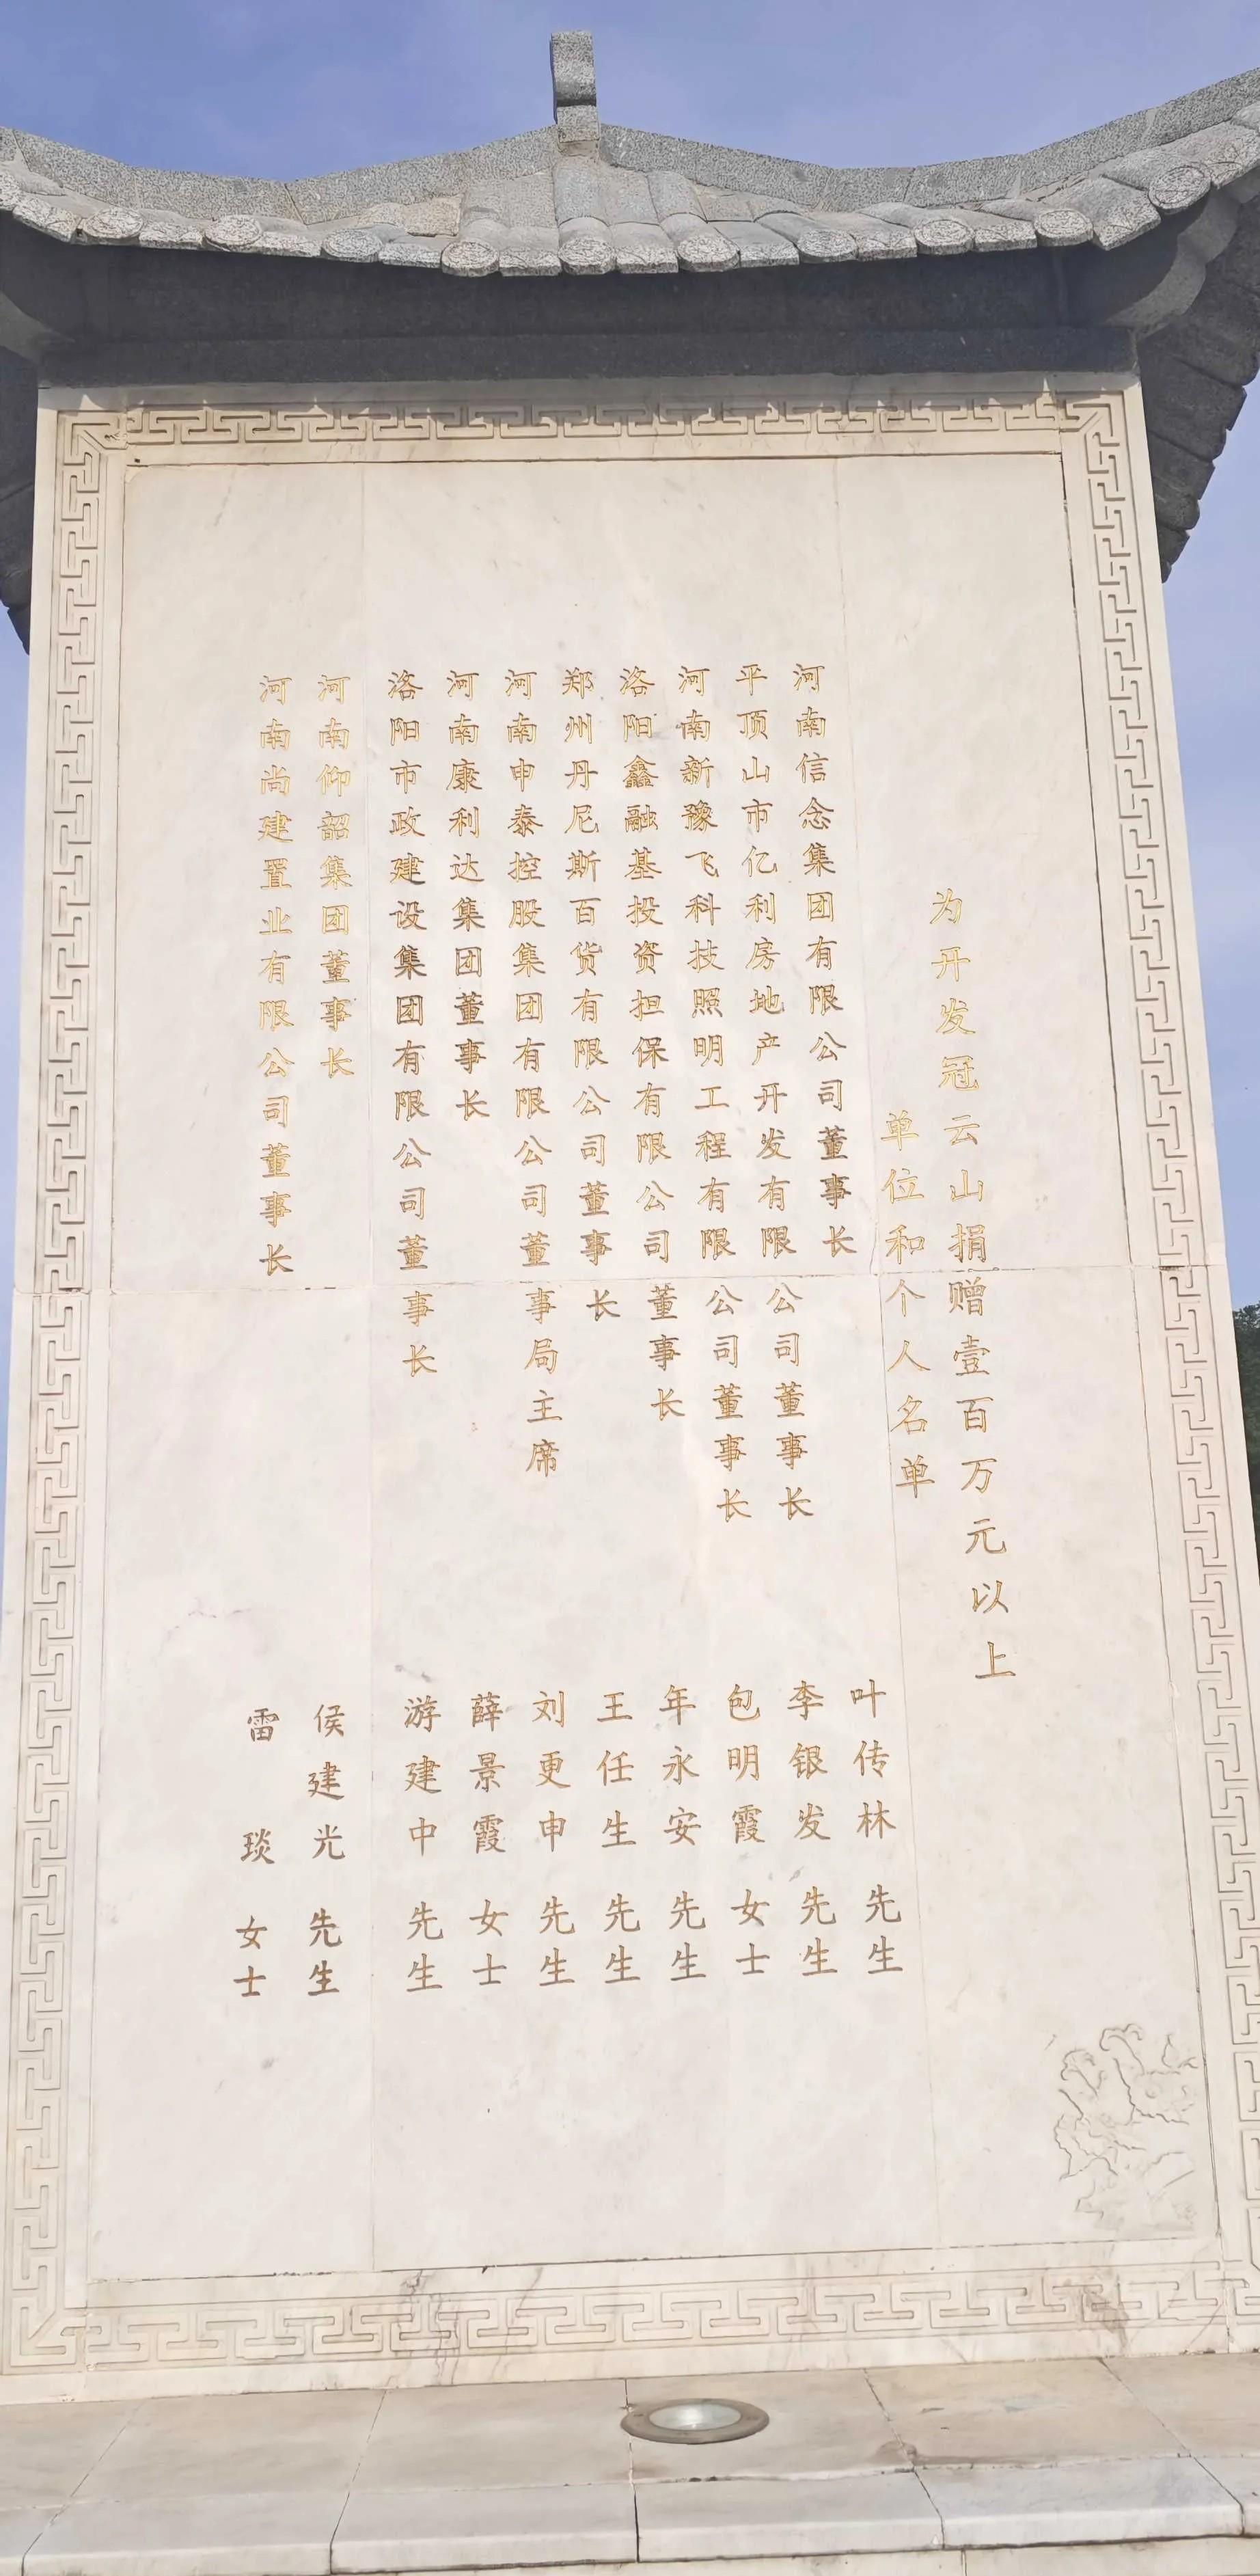 为开发冠云山捐赠壹百万元以上
单位和个人名单
河南信念集团有限公司董事长 叶传林 先生
平顶山市亿利房地产开发有限公司董事长 李银发 先生
河南新豫飞科技照明工程有限公司董事长 包明霞 女士
洛阳鑫融基投资担保有限公司董事长 年永安 先生
郑州丹尼斯百货有限公司董事长 王任生 先生
河南申泰控股集团有限公司董事局主席 刘更申 先生
河南康利达集团董事长 薛景霞 女士
洛阳市政建设集团有限公司董事长 游建中 先生
河南仰韶集团董事长 侯建光 先生
河南尚建置业有限公司董事长 雷琰 女士